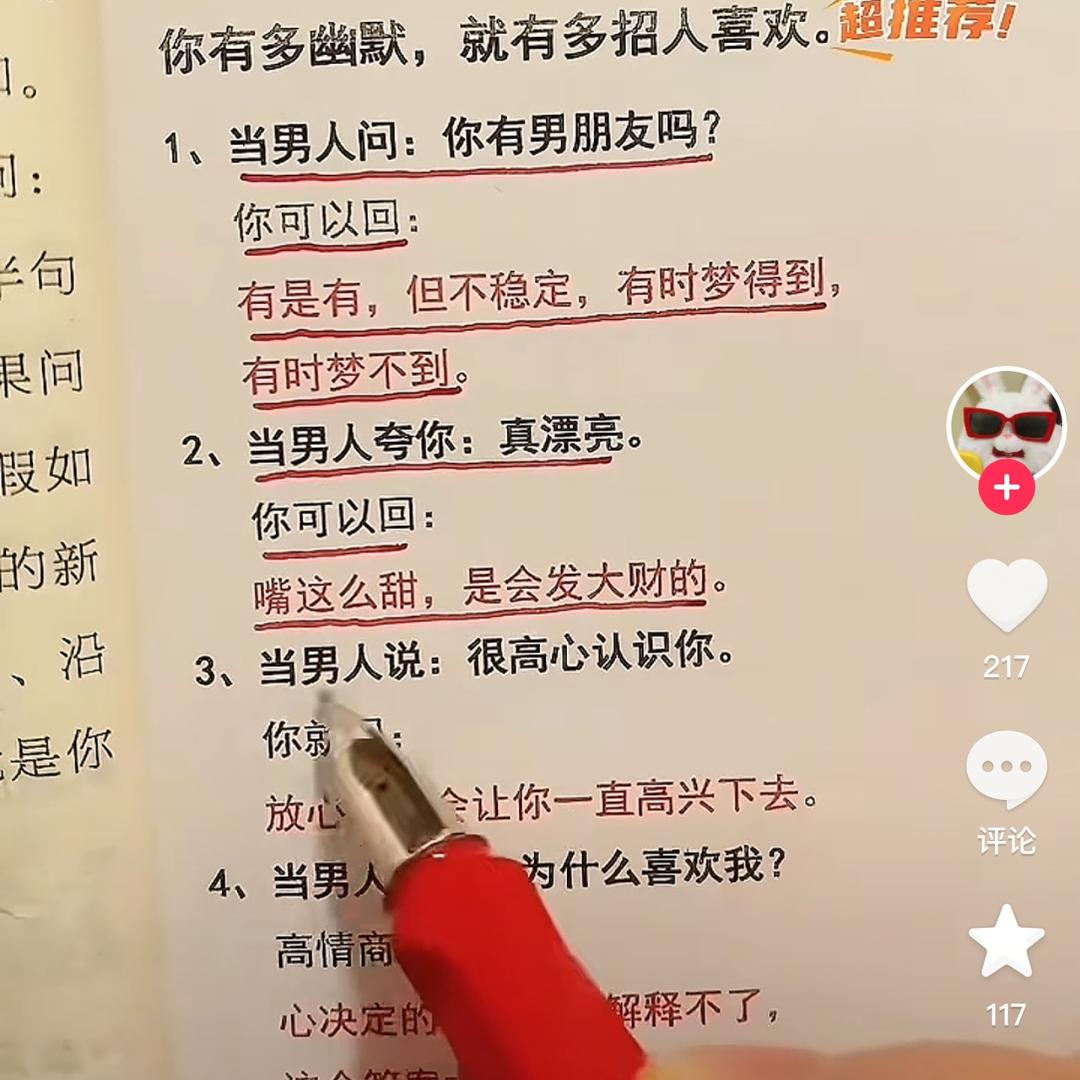 你有多幽默，就有多招人喜欢。
超推荐！
1、当男人问：你有男朋友吗？
你可以回：
有是有，但不稳定，有时梦得到，
有时梦不到。
2、当男人夸你：真漂亮。
你可以回：
嘴这么甜，是会发大财的。
3、当男人说：很高心认识你。
你就
放心 会让你一直高兴下去。
4、当男人 为什么喜欢我？
高情商
心决定的 解释不了，
。
半句
果问
假如
的新
、沿
是你
217
评论
117